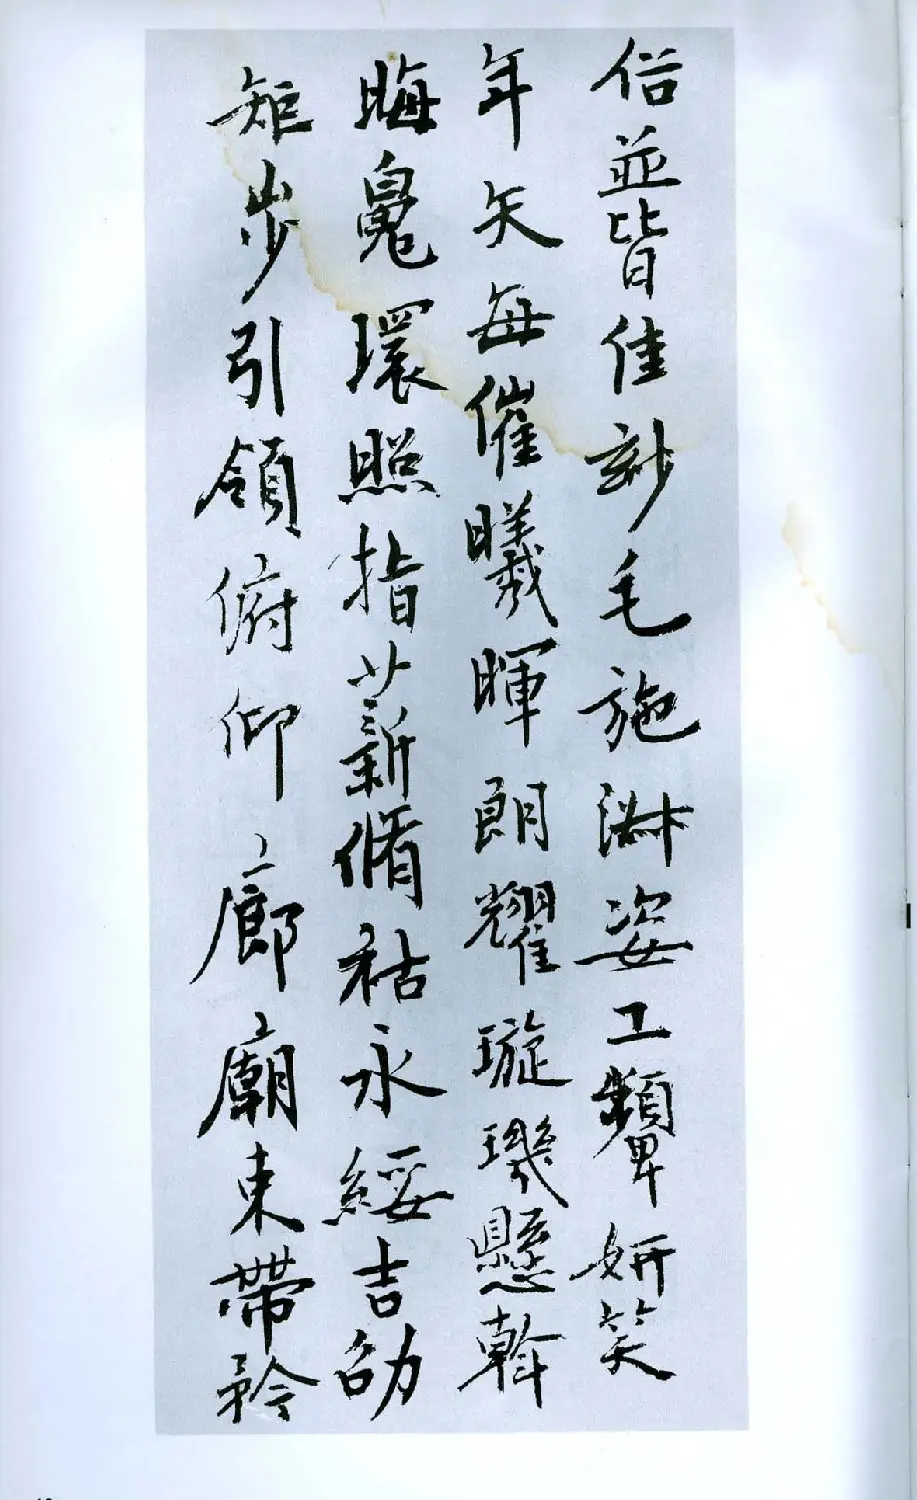 俗並皆佳妙毛施淑姿工顰妍笑
年矢每催曦暉朗耀璇璣懸斡
晦魄環照指薪脩祜永綏吉劭
矩步引領俯仰廊廟束帶矜